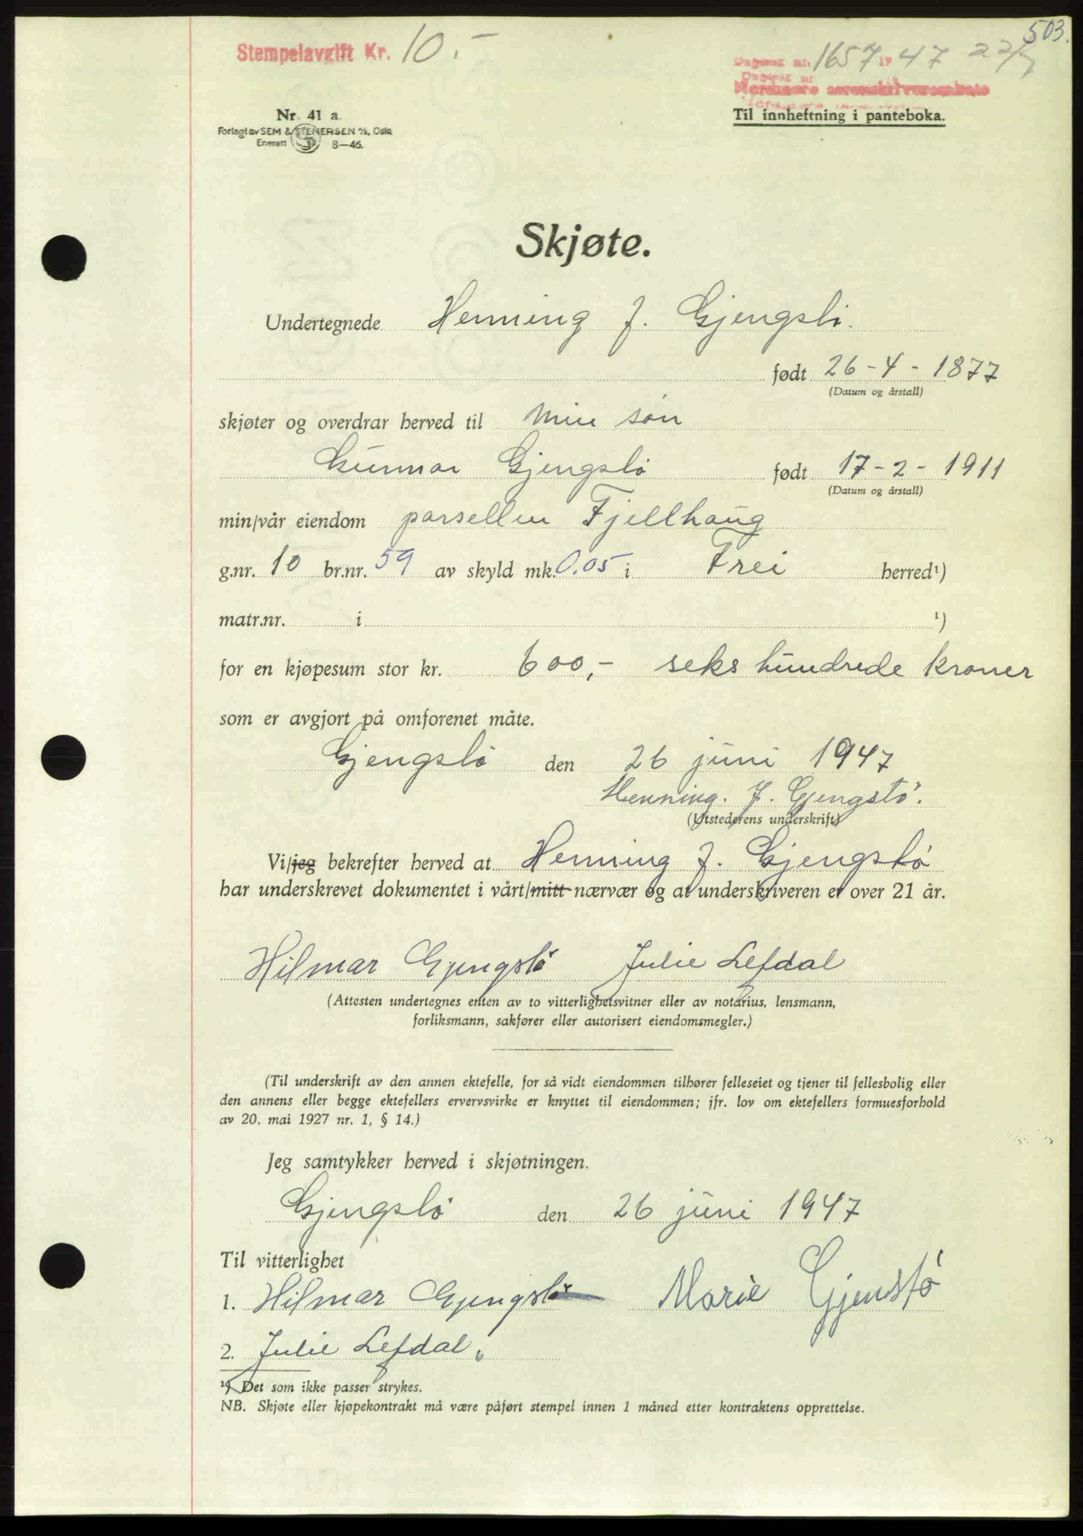 503.
Stempelavgift Kr. 10.-
1657 47 22/7
Nr. 41 a.
Forlagt av SEM & STENERSEN A/S, Oslo
Enerett 8-46.
Til innheftning i panteboka.
Skjøte.
Undertegnede Henning J. Gjengstö.
født 26-4-1877
(Datum og årstall)
skjøter og overdrar herved til min sön
Gunnar Gjengstö født 17-2-1911
(Datum og årstall)
min/vår eiendom parsellen Fjellhaug
g.nr. 10 br.nr. 59 av skyld mk. 0.05 i Frei herred¹)
matr.nr. i ¹)
for en kjøpesum stor kr. 600,- seks hundrede kroner
som er avgjort på omforenet måte.
Gjengstö den 26 juni 1947
Henning. J. Gjengstö.
(Utstederens underskrift)
Vi/jeg bekrefter herved at Henning J. Gjengstö
har underskrevet dokumentet i vårt/mitt nærvær og at underskriveren er over 21 år.
Hilmar Gjengstö Julie Lefdal
(Attesten undertegnes enten av to vitterlighetsvitner eller av notarius, lensmann,
forliksmann, sakfører eller autorisert eiendomsmegler.)
(Til underskrift av den annen ektefelle, for så vidt eiendommen tilhører felleseiet og tjener til fellesbolig eller
den annens eller begge ektefellers ervervsvirke er knyttet til eiendommen; jfr. lov om ektefellers formuesforhold
av 20. mai 1927 nr. 1, § 14.)
Jeg samtykker herved i skjøtningen.
Gjengstö den 26 juni 1947
Til vitterlighet
1. Hilmar Gjengstö Marie Gjenstö
2. Julie Lefdal.
¹) Det som ikke passer strykes.
NB. Skjøte eller kjøpekontrakt må være påført stempel innen 1 måned etter kontraktens opprettelse.